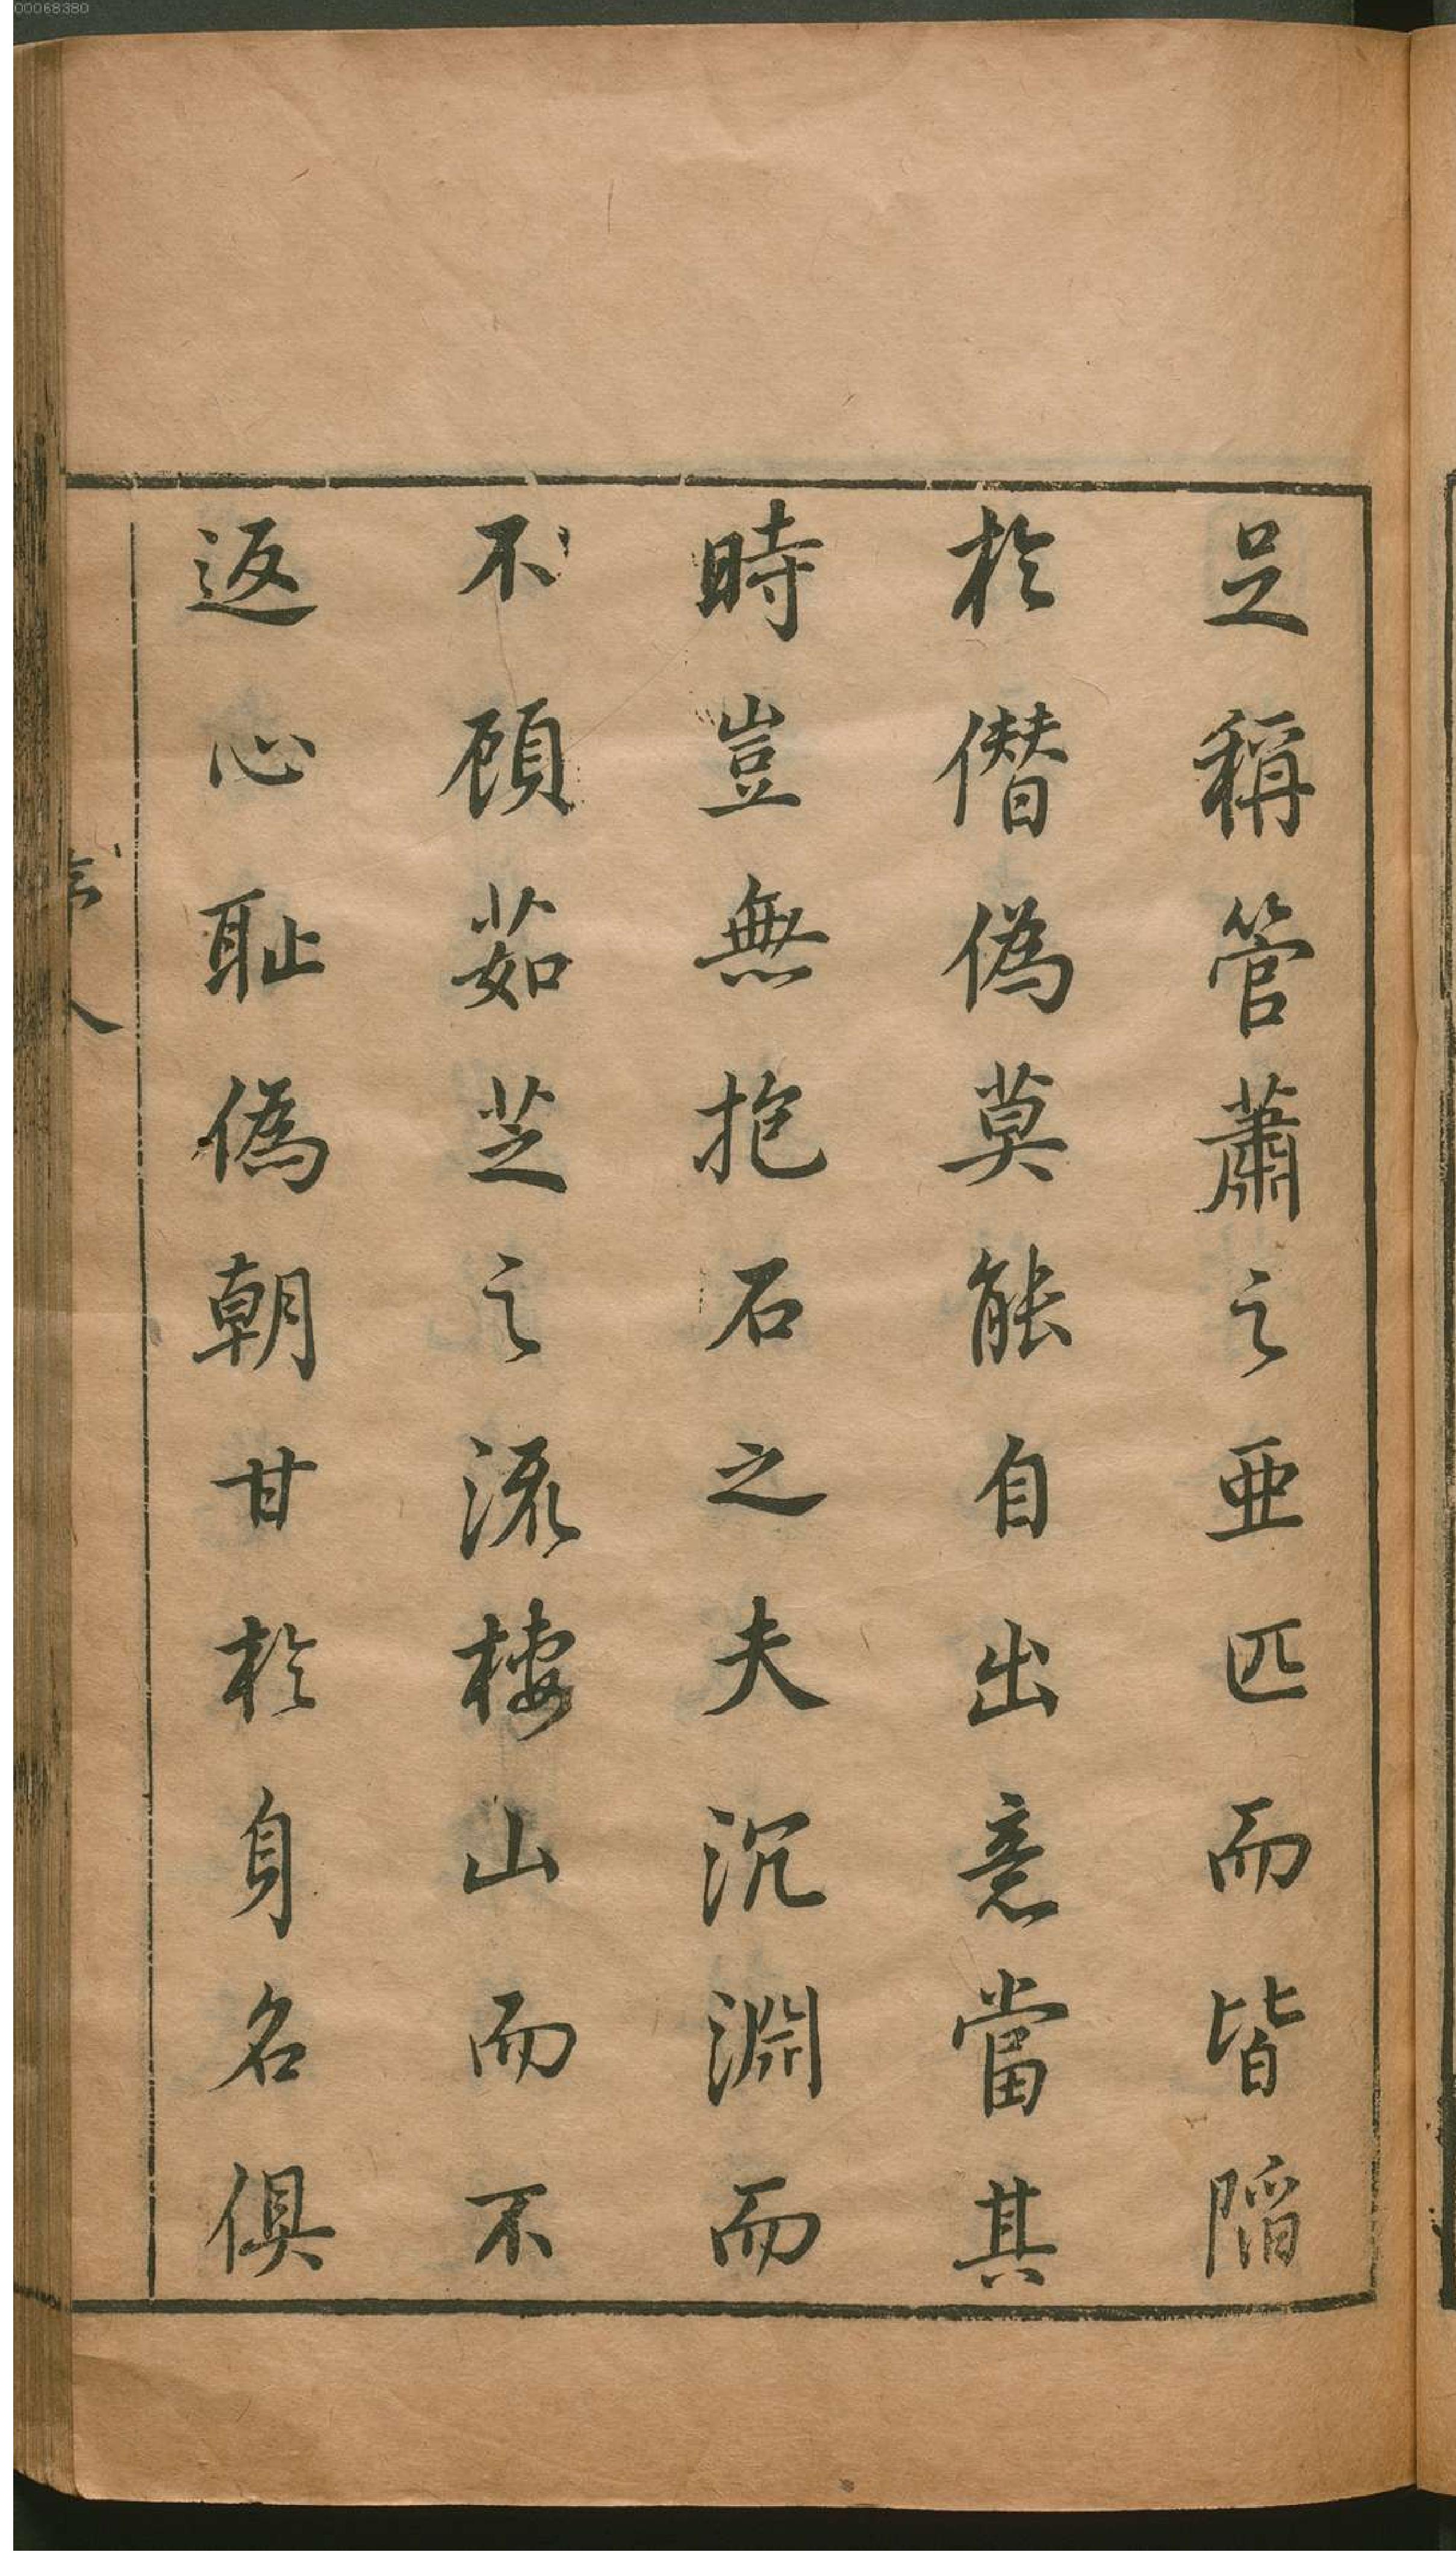 00068380
足稱管蕭之亜匹而皆陷
於僭偽莫能自出意當其
時豈無抱石之夫沉淵而
不顧茹芝之流棲山而不
返心耻偽朝甘於身名俱